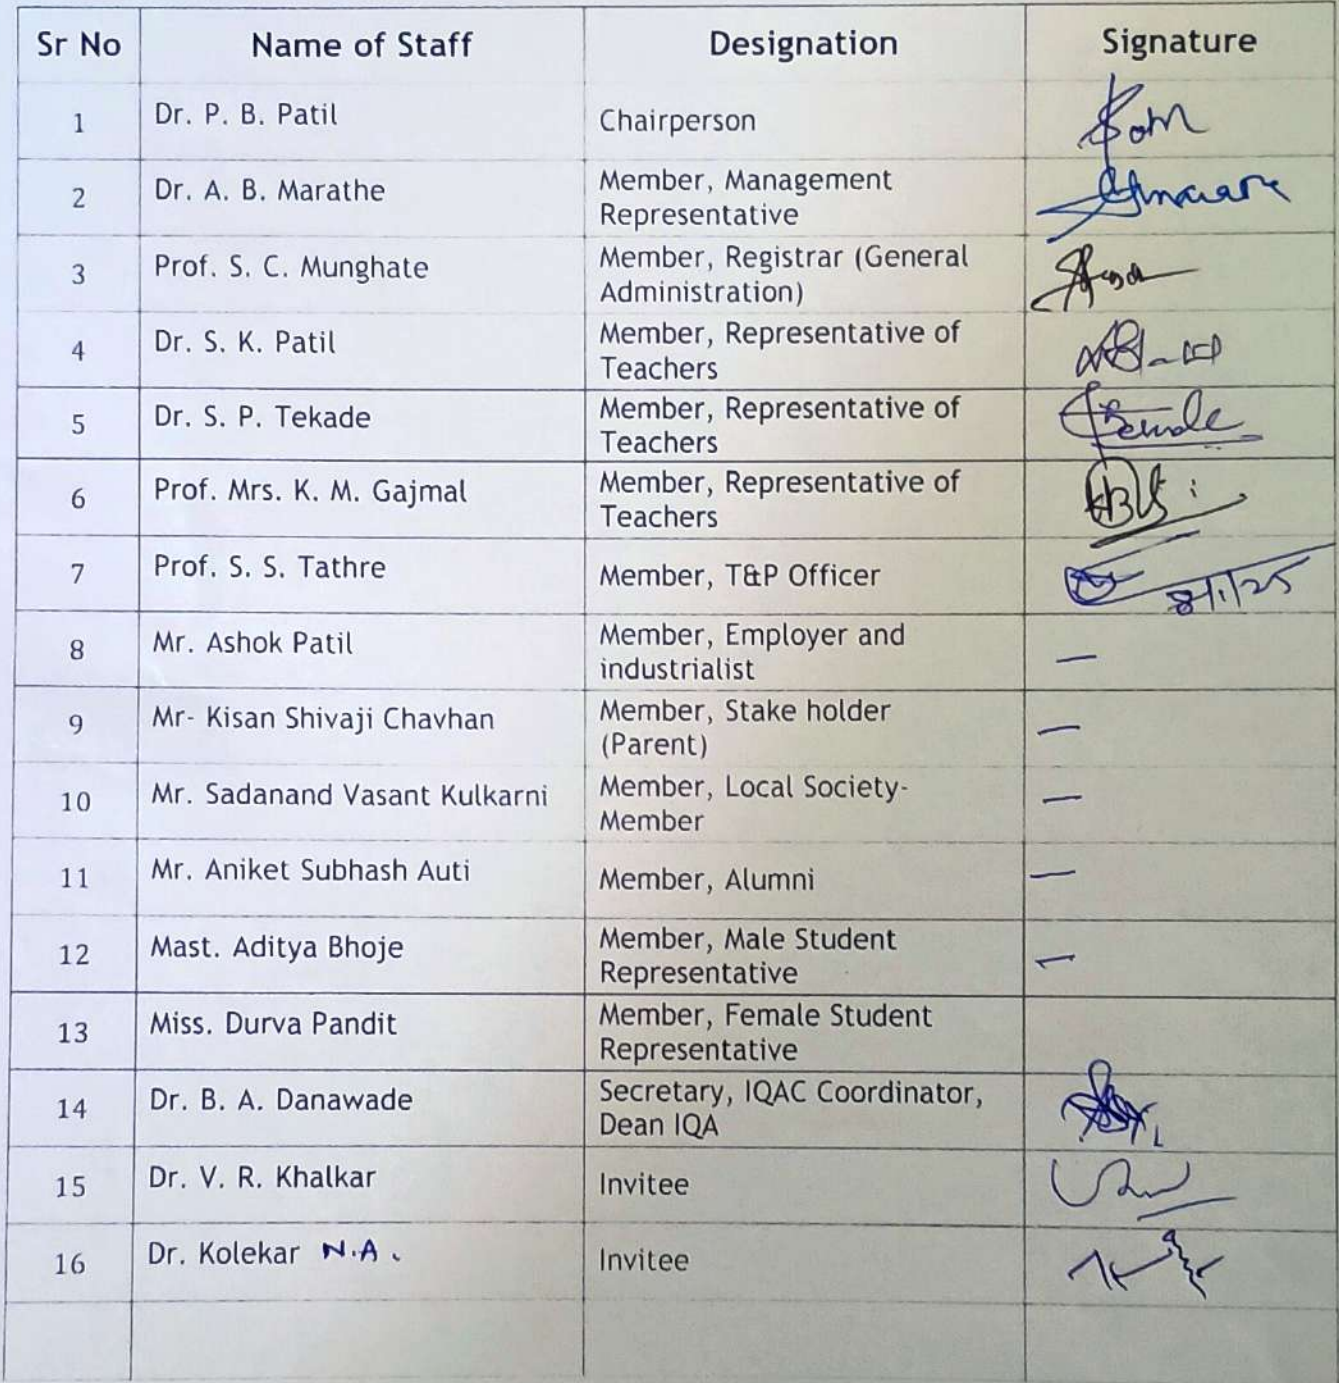 Sr No Name of Staff Designation Signature
1 Dr. P. B. Patil Chairperson
2 Dr. A. B. Marathe Member, Management
Representative
3 Prof. S. C. Munghate Member, Registrar (General
Administration)
4 Dr. S. K. Patil Member, Representative of
Teachers
5 Dr. S. P. Tekade Member, Representative of
Teachers
6 Prof. Mrs. K. M. Gajmal Member, Representative of
Teachers
7 Prof. S. S. Tathre Member, T&P Officer 8/1/25
8 Mr. Ashok Patil Member, Employer and
industrialist —
9 Mr- Kisan Shivaji Chavhan Member, Stake holder
(Parent) —
10 Mr. Sadanand Vasant Kulkarni Member, Local Society-
Member —
11 Mr. Aniket Subhash Auti Member, Alumni —
12 Mast. Aditya Bhoje Member, Male Student
Representative —
13 Miss. Durva Pandit Member, Female Student
Representative
14 Dr. B. A. Danawade Secretary, IQAC Coordinator,
Dean IQA
15 Dr. V. R. Khalkar Invitee
16 Dr. Kolekar N.A. Invitee